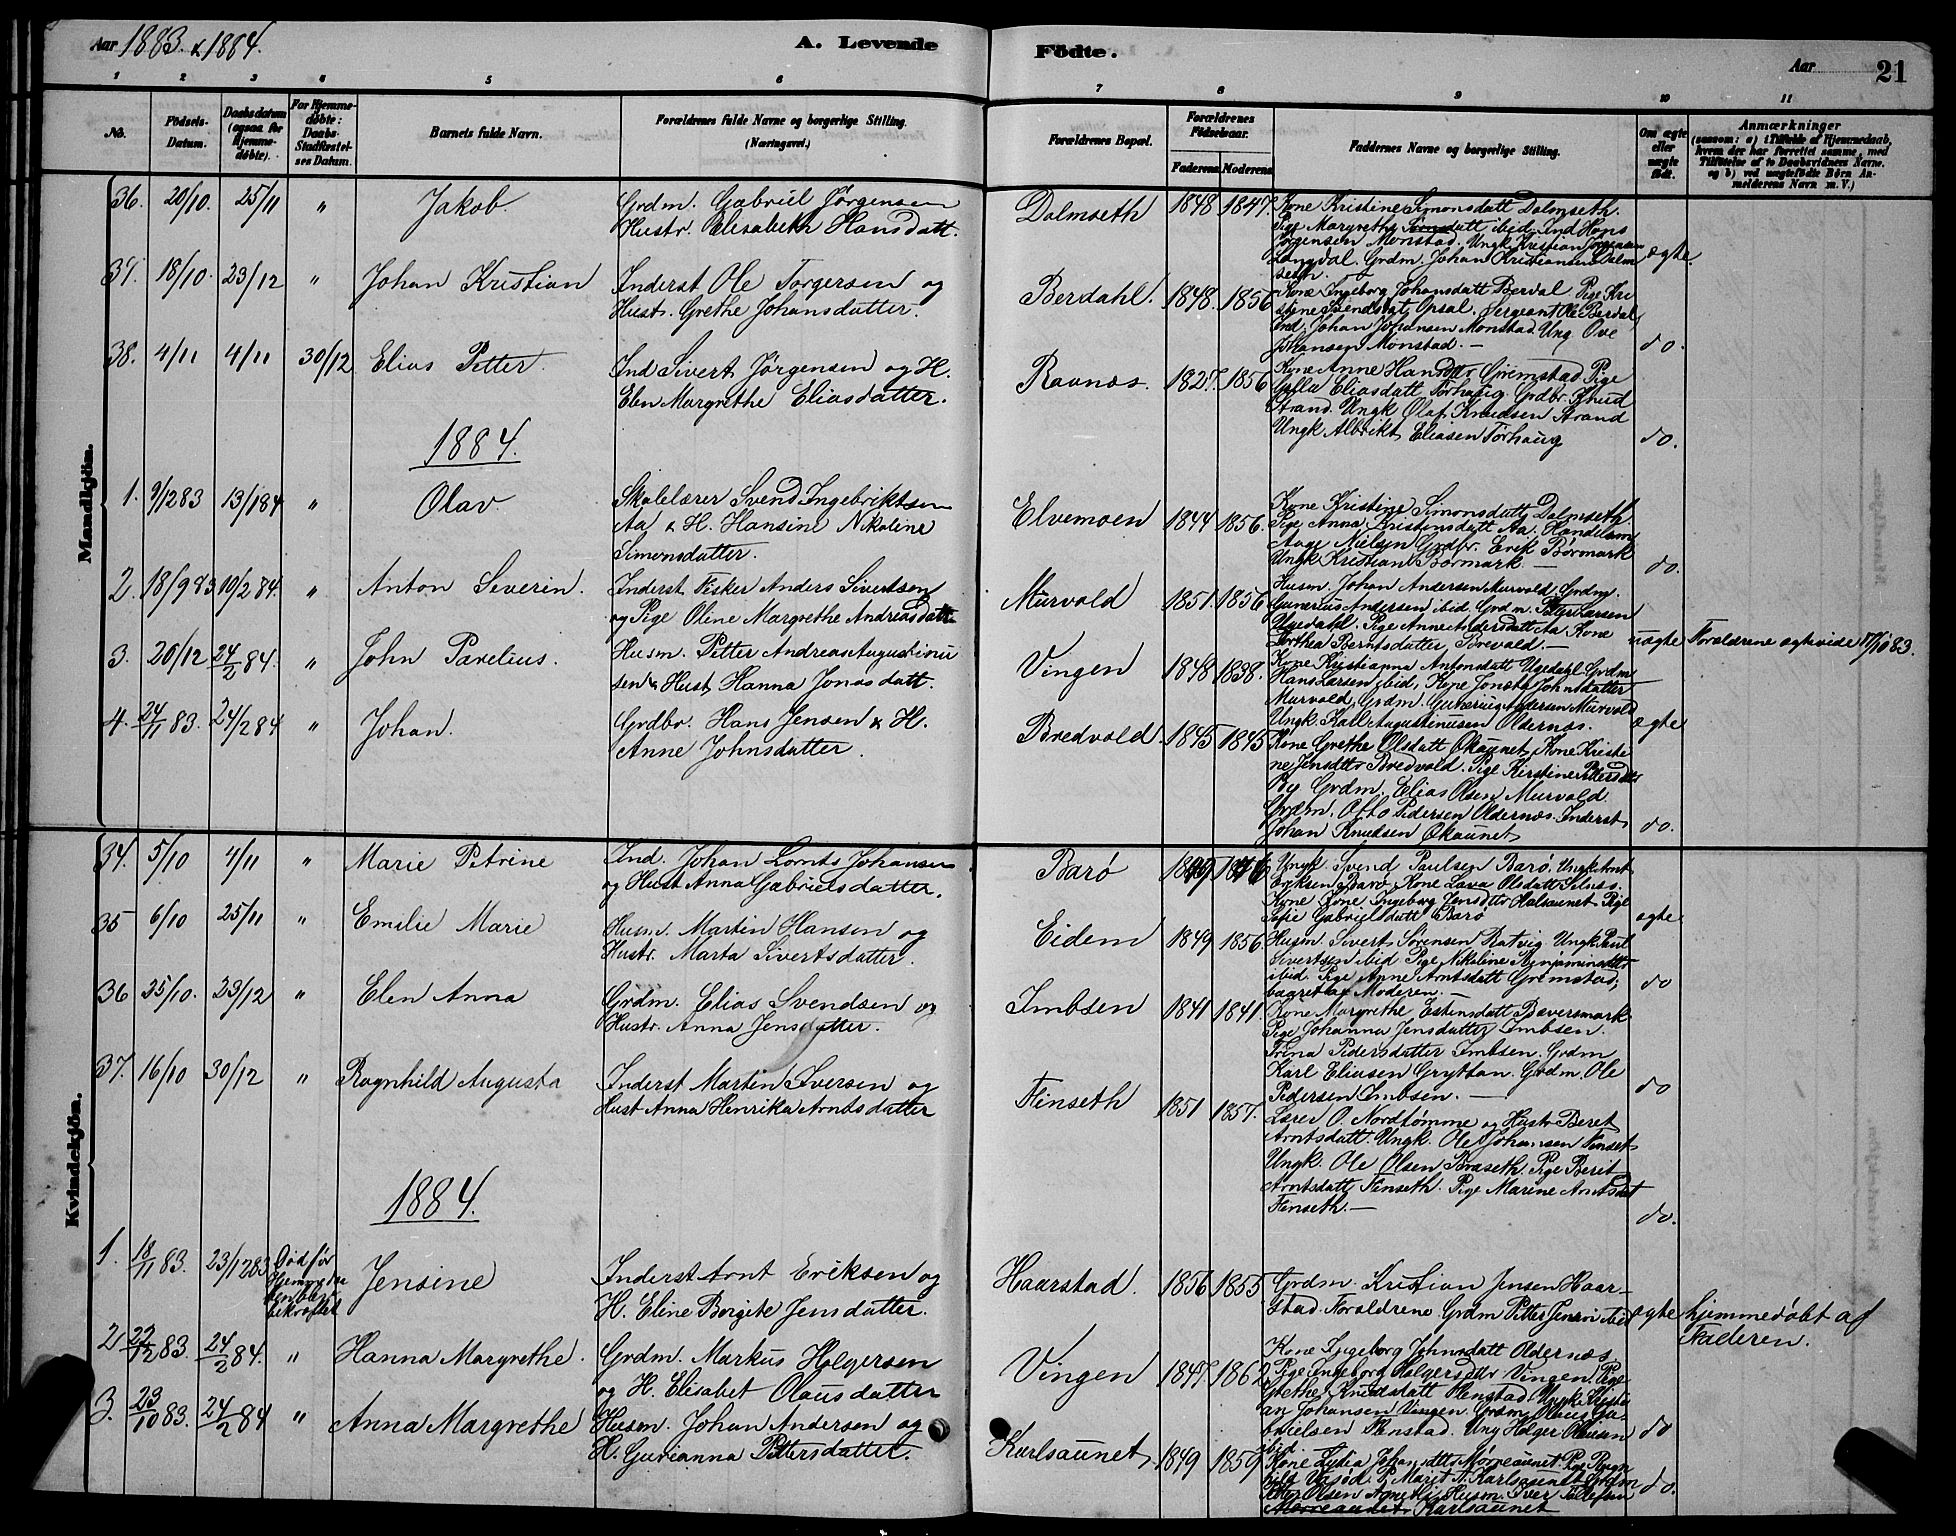 Aar 1883 & 1884.
A. Levende
Födte.
Aar 21
1 2 3 4 5 6 7 8 9 10 11
No.
Födsels-Datum.
Daabsdatum (ogsaa for Hjemmedøbte).
For Hjemmedøbte: Daabs-Stadfæstelses Datum.
Barnets fulde Navn.
Forældrenes fulde Navne og borgerlige Stilling. (Næringsvei.)
Forældrenes Bopæl.
Forældrenes Födselsaar.
Faderens. Moderens.
Faddernes Navne og borgerlige Stilling.
Om ægte eller uægte født.
Anmærkninger
(saasom: a) i Tilfælde af Hjemmedaab, hvem der har forrettet samme, med Tilföielse af to Daabsvidners Navne. og b) ved uægtefödte Börn Anmelderens Navn m. V.)
Mandkjön.
36. 20/10. 25/11 " Jakob. Grdm. Gabriel Jørgensen
Hustr. Elisabeth Hansdatt.
Dalmseth 1848 1847. Kone Kristine Simonsdatt Dalmseth.
Pige Margrethe Tønsdatt ibid. Ind Hans
Jørgensen Monstad. Ungk Kristian Jørgensen
Langdal. Grdm. Johan Kristiansen Dalm
seth. ægte.
37. 18/10. 23/12 " Johan Kristian Inderst Ole Torgersen og
Hust. Grethe Johansdatter.
Berdahl. 1848. 1856 Kone Ingeborg Johansdatt Berdal. Pige Kri
stine Svendsdatt Opsal. Sergeant Ole Berdal,
Ind. Johan Johansen Monstad. Ung. Ove
Johansen Monstad.— do.
38. 4/11 4/11 30/12 Elias Petter. Ind Sivert Jørgensen og H.
Elen Margrethe Eliasdatter.
Ravnas. 1827. 1856 Kone Anne Hansdtr Gremstad. Pige
Gylla Eliasdatt Torhaug. Grdbr. Knud
Strand. Ungk Olaf Knudsen Strand
Ungk Albrikt Eliasen Torhaug do.
1884.
1. 9/12 83 13/1 84 " Olav Skolelærer Svend Ingebriktsen
Aa & H. Hansine Nikoline
Simonsdatter.
Elvemoen 1844 1856. Kone Kristine Simonsdatt Dalmseth
Pige Anna Kristensdatt Aa. Handelsm
Aage Nielsen Grdbr. Erik Børmark
Ungk Kristian Børmark.— do.
2. 18/9 83 10/2 84. " Anton Severin. Inderst Fisker Anders Sivertsen
og Pige Oline Margrethe Andreasdatt
Murvold 1851. 1856 Husm. Johan Andersen Murvold. Grdm.
Gunerius Andersen ibid. Grdm. Petter Larsen
Ugedahl. Pige Anne Andersdatt Aa. Kone
Dorthea Berntsdatter Brevald.— uægte Forældrene ægteviede 17/10 83.
3. 20/12 24/2 84. " John Parelius. Husm. Petter Andreas Augustinu
sen & Hust Hanna Jonasdatt.
Vingen 1848 1838. Kone Kristianna Antonsdatt Ugedahl Grdm
Hans Larsen ibid, Kone Jonetta Johnsdatter
Murvold, Grdm. Gunerius Andersen Murvold
Ungk. Karl Augustinusen Oldernes. ægte
4. 24/11 83. 24/2 84 " Johan. Grdbr. Hans Jensen & H.
Anne Johnsdatter
Bredvold. 1845 1845 Kone Grethe Olsdatt Økaunet, Kone Kristi
ne Jensdtr Bredvold. Pige Kirstine Pettersdtr
By Grdm. Elias Olsen Murvold
Grdm. Otto Pedersen Oldernes. Inderst
Johan Knudsen Økaunet do.
Kvindekjön.
34. 5/10 4/11 " Marie Petrine Ind. Johan Lornts Johansen
og Hust Anna Gabrielsdatter.
Barø 1849 1846 Ungk. Svend Paulsen Barø. Ungk Arnt
Eriksen Barø. Kone Lava Olsdatt Selnes.
Kone Ingeborg Jensdtr Halsaunet. Pige
Sofie Gabrielsdatt Barø ægte
35 6/10 25/11 " Emilie Marie Husm. Martin Hansen og
Hustr. Marta Sivertsdatter.
Eidem 1849 1856. Husm. Sivert Sørensen Ratvig. Ungk. Paul
Sivertsen ibid Pige Nikoline Benjaminsdtr
ibid. Pige Anne Arntsdatt Gremstad,
baaret af Moderen.— do
36 25/10. 23/12 " Elen Anna Grdm. Elias Svendsen og
Hustr. Anna Jensdatter.
Imbsen 1841 1841. Kone Margrethe Estensdatt Bæversmark
Pige Johanna Jensdatter Imbsen.
Trina Pedersdatter Imbsen. Grdm
Karl Eliasen Gryttan. Grdm. Ole
Pedersen Imbsen.— do
37. 16/10 30/12 " Ragnhild Augusta Inderst Martin Iversen og
Hust Anna Henrika Arntsdatter
Finseth 1851 1857. Lærer O. Nordtømme og Hustr Beret
Arntsdatt. Ungk. Ole Johansen Finset
Ungk. Ole Olsen Braseth. Pige Berit
Arntsdatt Finseth. Pige Marine Arntsdat
Finseth.— do.
1884.
1. 18/11 83. 23/12 83 Død før
Hjemmedaa
ben blev
bekræftet Jensine Inderst Arnt Eriksen og
H. Eline Borgite Jensdatter.
Haarstad. 1856 1855 Grdm. Kristian Jensen Haar-
stad. Forældrene. Grdm Petter Jensen ibid ægte hjemmedøbt af
Faderen.
2 22/12 83. 24/2 84. " Hanna Margrethe. Grdm. Markus Holgersen
og H. Elisabet Olausdatter
Vingen 1847. 1862 Kone Ingeborg Johnsdatt Oldernes
Pige Ingeborg Holgersdtr Vingen. Pige
Grethe Knudsdatt Olengstad. Ungk Kristi
an Johansen Vingen. Grdm Olaus Ga-
brielsen Finstad. Ung Holger Olausen
ibid. do
3. 23/10 83. 24/2 84 " Anna Margrethe Husm. Johan Andersen og
H. Gurianna Pettersdatter.
Karlsaunet. 1849 1859 Kone Lydia Johansdtr Mørreaunet Pige Ragn
hild Vasød. P. Marit N. Karlsaunet Grdm
Peter Olsen Agnetli. Husm. Iver Tollefsen
Mørreaunet Karlsaunet do.